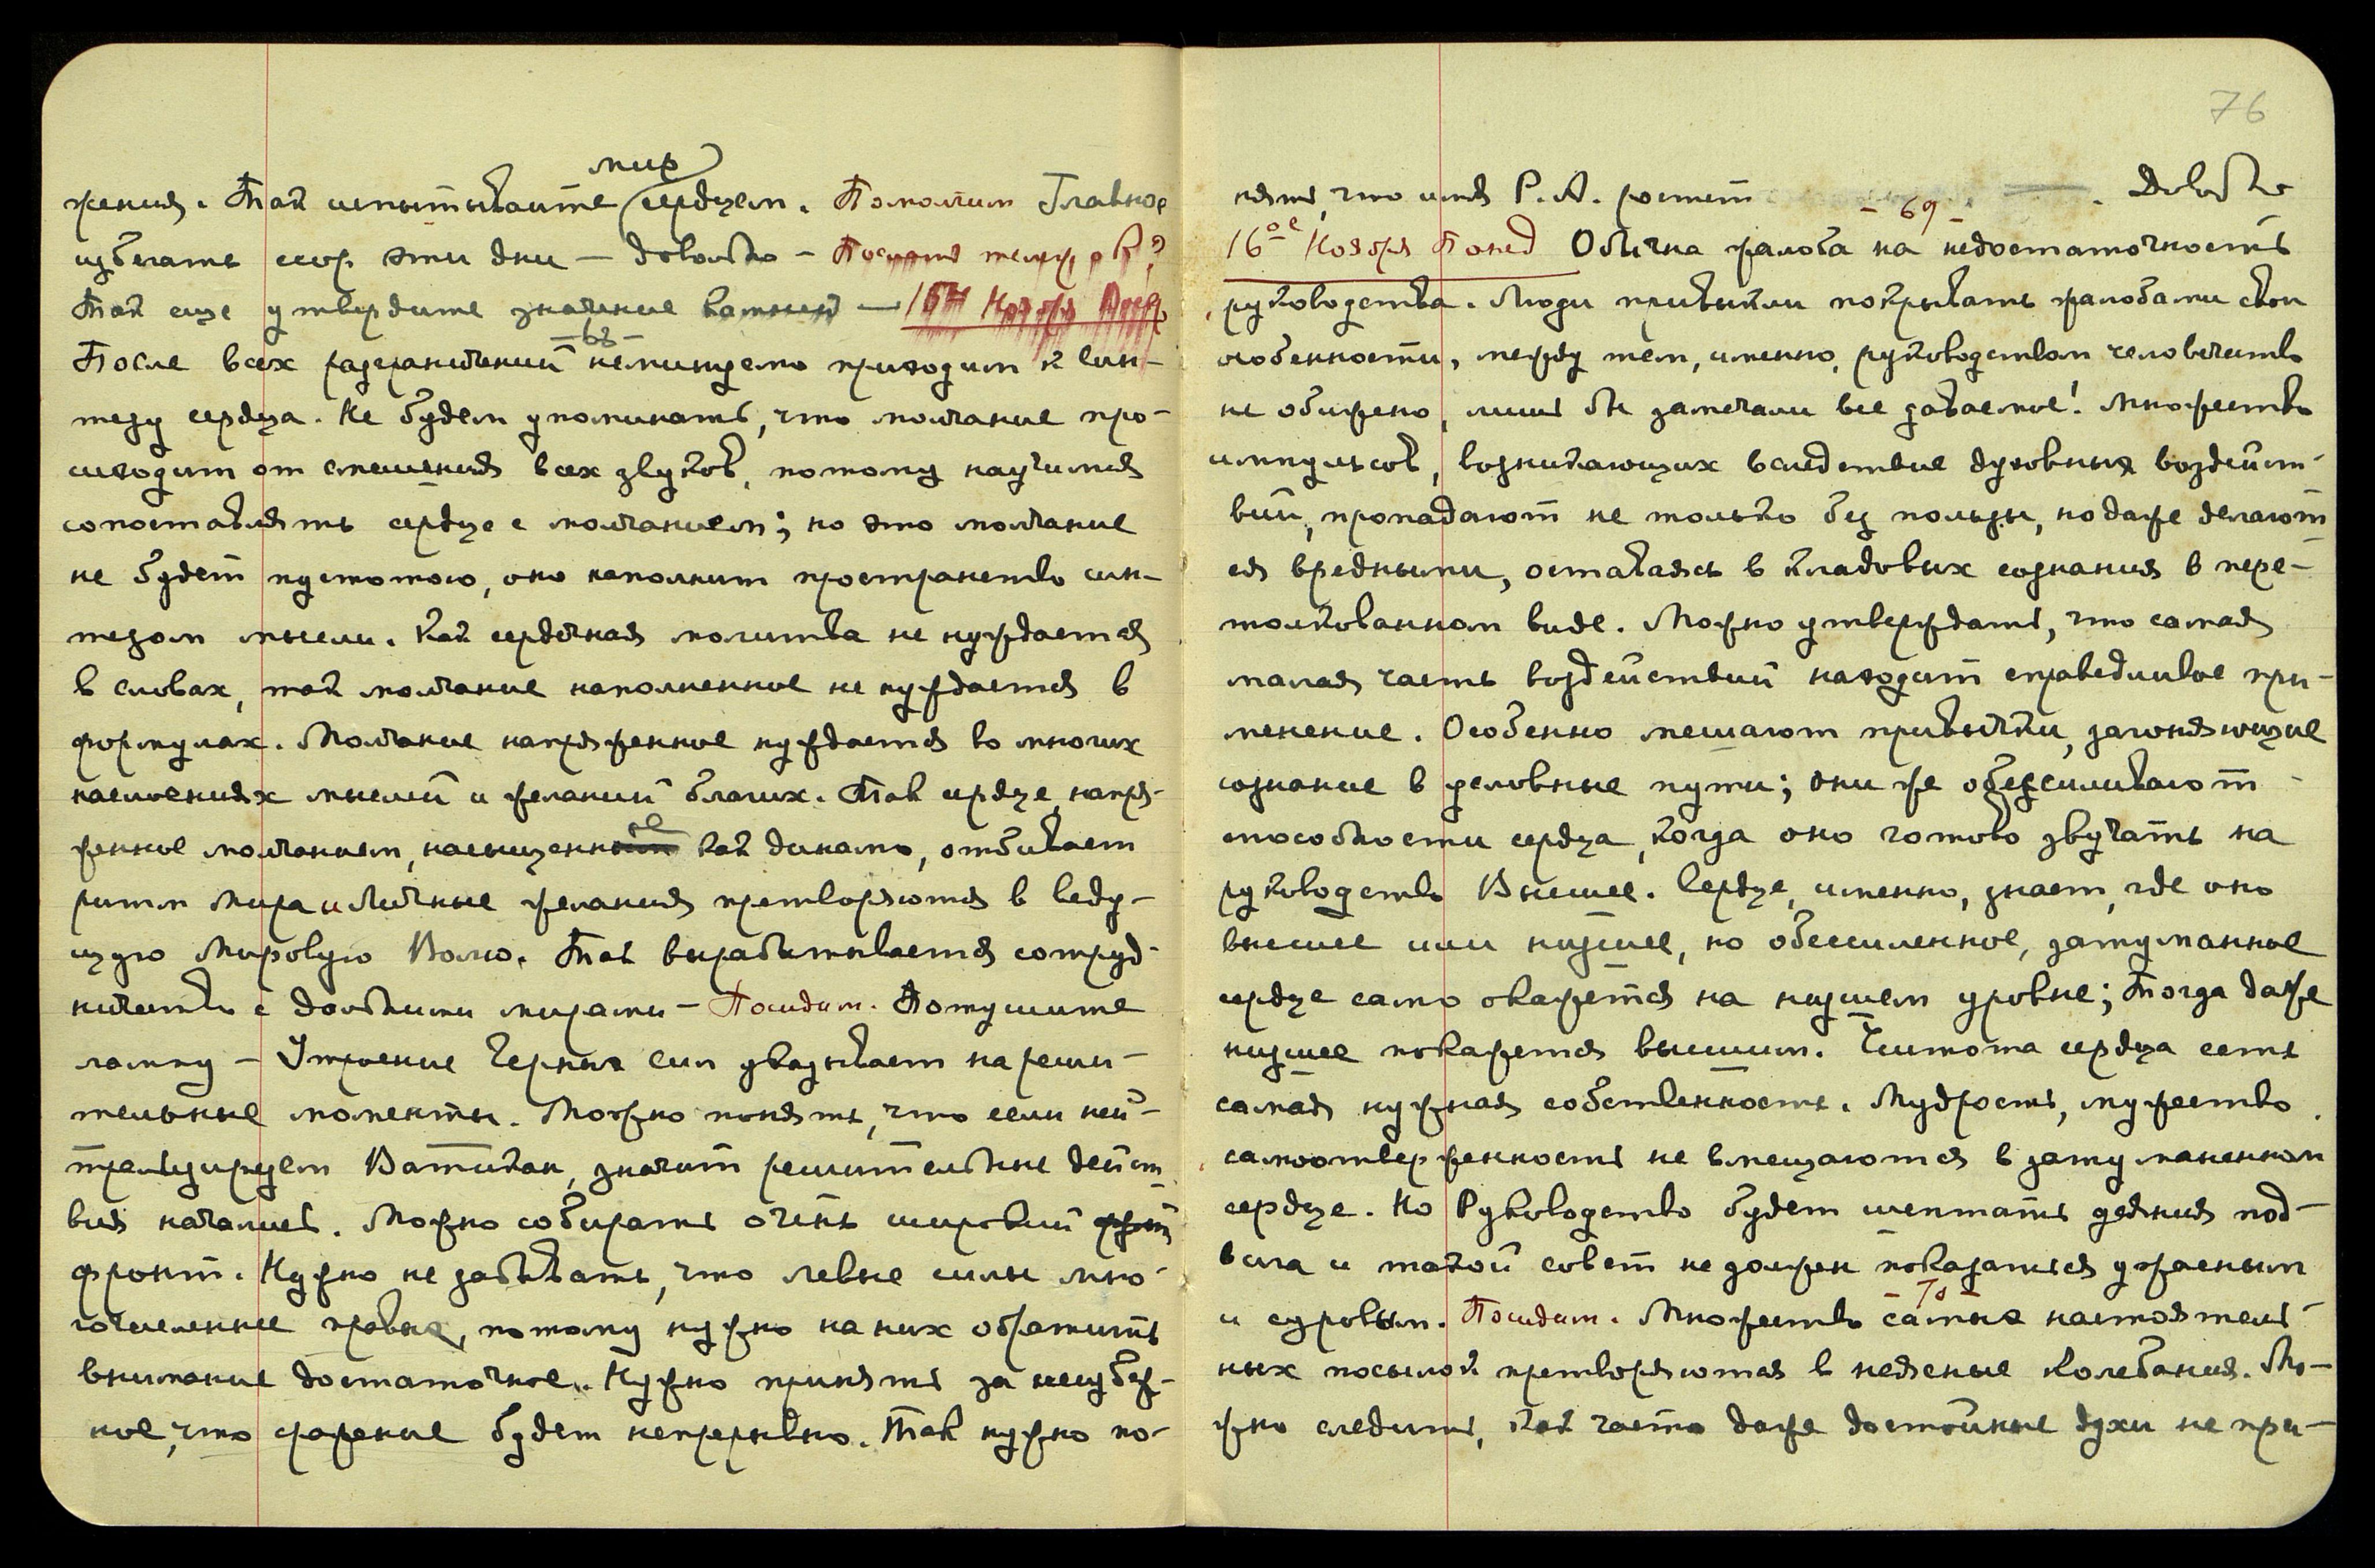 мир
жения. Так испытывайте сердцем. Помолчим Главное
избегать ссор эти дни — довольно —
Так еще утвердите значение
- 68 -
После всех разграничений неминуемо приходим к син-
тезу сердца. Не будем упоминать, что молчание про-
исходит от смешения всех звуков, потому научимся
сопоставлять сердце с молчанием; но это молчание
не будет пустотою, оно наполнит пространство син-
тезом мысли. Как сердечная молитва не нуждается
в словах, так молчание наполненное не нуждается в
формулах. Молчание напряженное нуждается во многих
наслоениях мыслей и желаний благих. Так сердце, напря-
женное молчанием, насыщенное как динамо, отбивает
ритм Мира и Личные желания претворяются в веду-
щую Мировую Волю. Так вырабатывается сотруд-
ничество с дальними мирами — Посидим. Потушите
лампу — Утроение Черных сил указывает на реши-
тельные моменты. Можно понять, что если ней-
трализируем Ватикан, значит решительные дейст-
вия начались. Можно собирать очень широкий
фронт. Нужно не забывать, что левые силы мно-
гочисленнее правых, потому нужно на них обратить
внимание достаточное. Нужно принять за неизбеж-
ное, что сражение будет непрерывно. Так нужно по-
76
нять, что имя Р. А. растет . Довольно
- 69 -
16ое Ноября Понед Обычна жалоба на недостаточность
руководства. Люди привыкли покрывать жалобами свои
особенности, между тем, именно, руководством человечество
не обижено, лишь бы замечали все даваемое! Множество
импульсов, возникающих вследствие духовных воздейст-
вий, пропадают не только без пользы, но даже делают
ся вредными, оставаясь в кладовых сознания в пере-
толкованном виде. Можно утверждать, что самая
малая часть воздействий находит справедливое при-
менение. Особенно мешают привычки, загоняющие
сознание в условные пути; они же обессиливают
способности сердца, когда оно готово звучать на
руководство Высшее. Сердце, именно, знает, где оно
высшее или низшее, но обессиленное, затуманное
сердце само окажется на низшем уровне; тогда даже
низшее покажется высшим. Чистота сердца есть
самая нужная собственность. Мудрость, мужество,
самоотверженность не вмещаются в затуманенном
сердце. Но Руководство будет шептать деяния под-
вига и такой совет не должен показаться ужасным
и суровым. Посидим. Множество самых настоятель-
- 70 -
ных посылок претворяются в неясные колебания. Мо-
жно следить, как часто даже достойные духи не при-